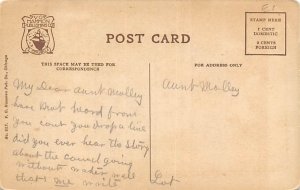 E1
POST CARD
STAMP HERE
1 CENT
DOMESTIC
2 CENTS
FOREIGN
THIS SPACE MAY BE USED FOR
CORRESPONDENCE
FOR ADDRESS ONLY
My Dear Aunt Molley
have not heard from
you cant you drop a line
did you ever hear the story
about the camel going
without water well
that's me
Aunt Molley